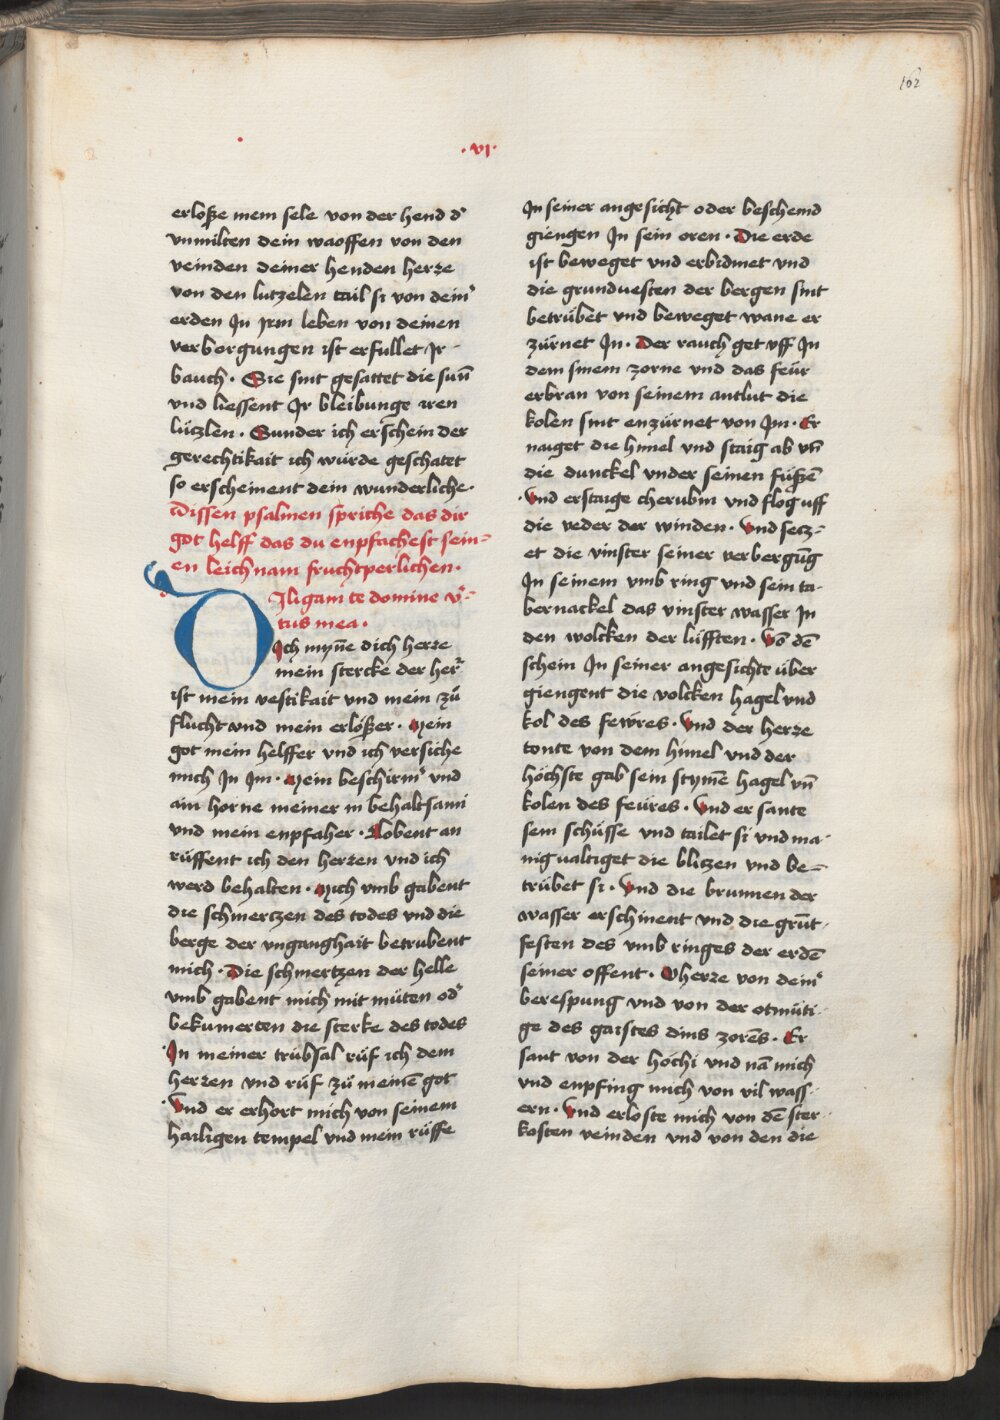 162
· vi ·
erlosze mein sele von der hend d'
vnmilten dein waoffen von den
veinden deiner henden herre
von den lutzelen tail si von dein'
erden Jn irm leben von deinen
verborgungen ist erfullet Jr
bauch · Sie sint gesattet die sun̄
vnd liessent Jr bleibunge iren
lützlen · Sunder ich erschein der
gerechtikait ich würde geschatet
so erscheinent dein wunderliche ·
Dissen psalmen spriche das dir
got helff das du enpfachest sein=
en leichnam fruchtperlichen ·
DIligam te domine v'=
tus mea ·
Ich myn̄e dich herre
mein stercke der her'
ist mein vestikait vnd mein zů
flucht vnd mein erlöszer · Mein
got mein helffer vnd ich versiche
mich Jn Jm · Mein beschirm' vnd
ain horne meiner in behaltsami
vnd mein enpfaher · Lobent an
rüffent ich den herren vnd ich
werd behalten · Mich vmb gabent
die schmertzen des todes vnd die
berge der vnganghait betrubent
mich · Die schmertzen der helle
vmb gabent mich mit müten od'
bekumerten die sterke des todes
· In meiner trübsal rüf ich dem
herren vnd rüf zů meinē got
· Vnd er erhort mich von seinem
hailigen tempel vnd mein rüffe
Jn seiner angesicht oder beschemd
giengen Jn sein oren · Die erde
ist beweget vnd erbidmet vnd
die grunduesten der bergen sint
betrübet vnd beweget wane er
zürnet Jn · Der rauch get vff Jn
dem sinem zorne vnd das feür
erbran von seinem antlut die
kolen sint enzürnet von Jm · Er
naiget die himel vnd staig ab vn̄
die dunckel vnder seinen füszē
· Vnd erstaige cherubin vnd flog uff
die veder der winden · Vnd secz=
et die vinster seiner verbergūg
Jn seinem vmb ring vnd sein ta-
bernackel das vinster wasser Jn
den wolcken der lüfften · Vō dē
schein Jn seiner angesichte über
giengent die volcken hagel vnd
kol des fewres · Vnd der herre
tonte von dem himel vnd der
höchste gab sein stym̄e hagel vn̄
kolen des feüres · Vnd er sante
sein schüsse vnd tailet si vnd ma-
nigualtiget die blitzen vnd be=
trübet si · Vnd die brunnen der
wasser erschinent vnd die grūt-
festen des vmb ringes der erdē
seiner offent · O herre von dein'
berespung vnd von der otmüti-
ge des gaistes dins zorēs · Er
sant von der höchi vnd nā mich
vnd enpfing mich von vil wass-
ern · Vnd erloste mich von dē ster-
kosten veinden vnd von den die